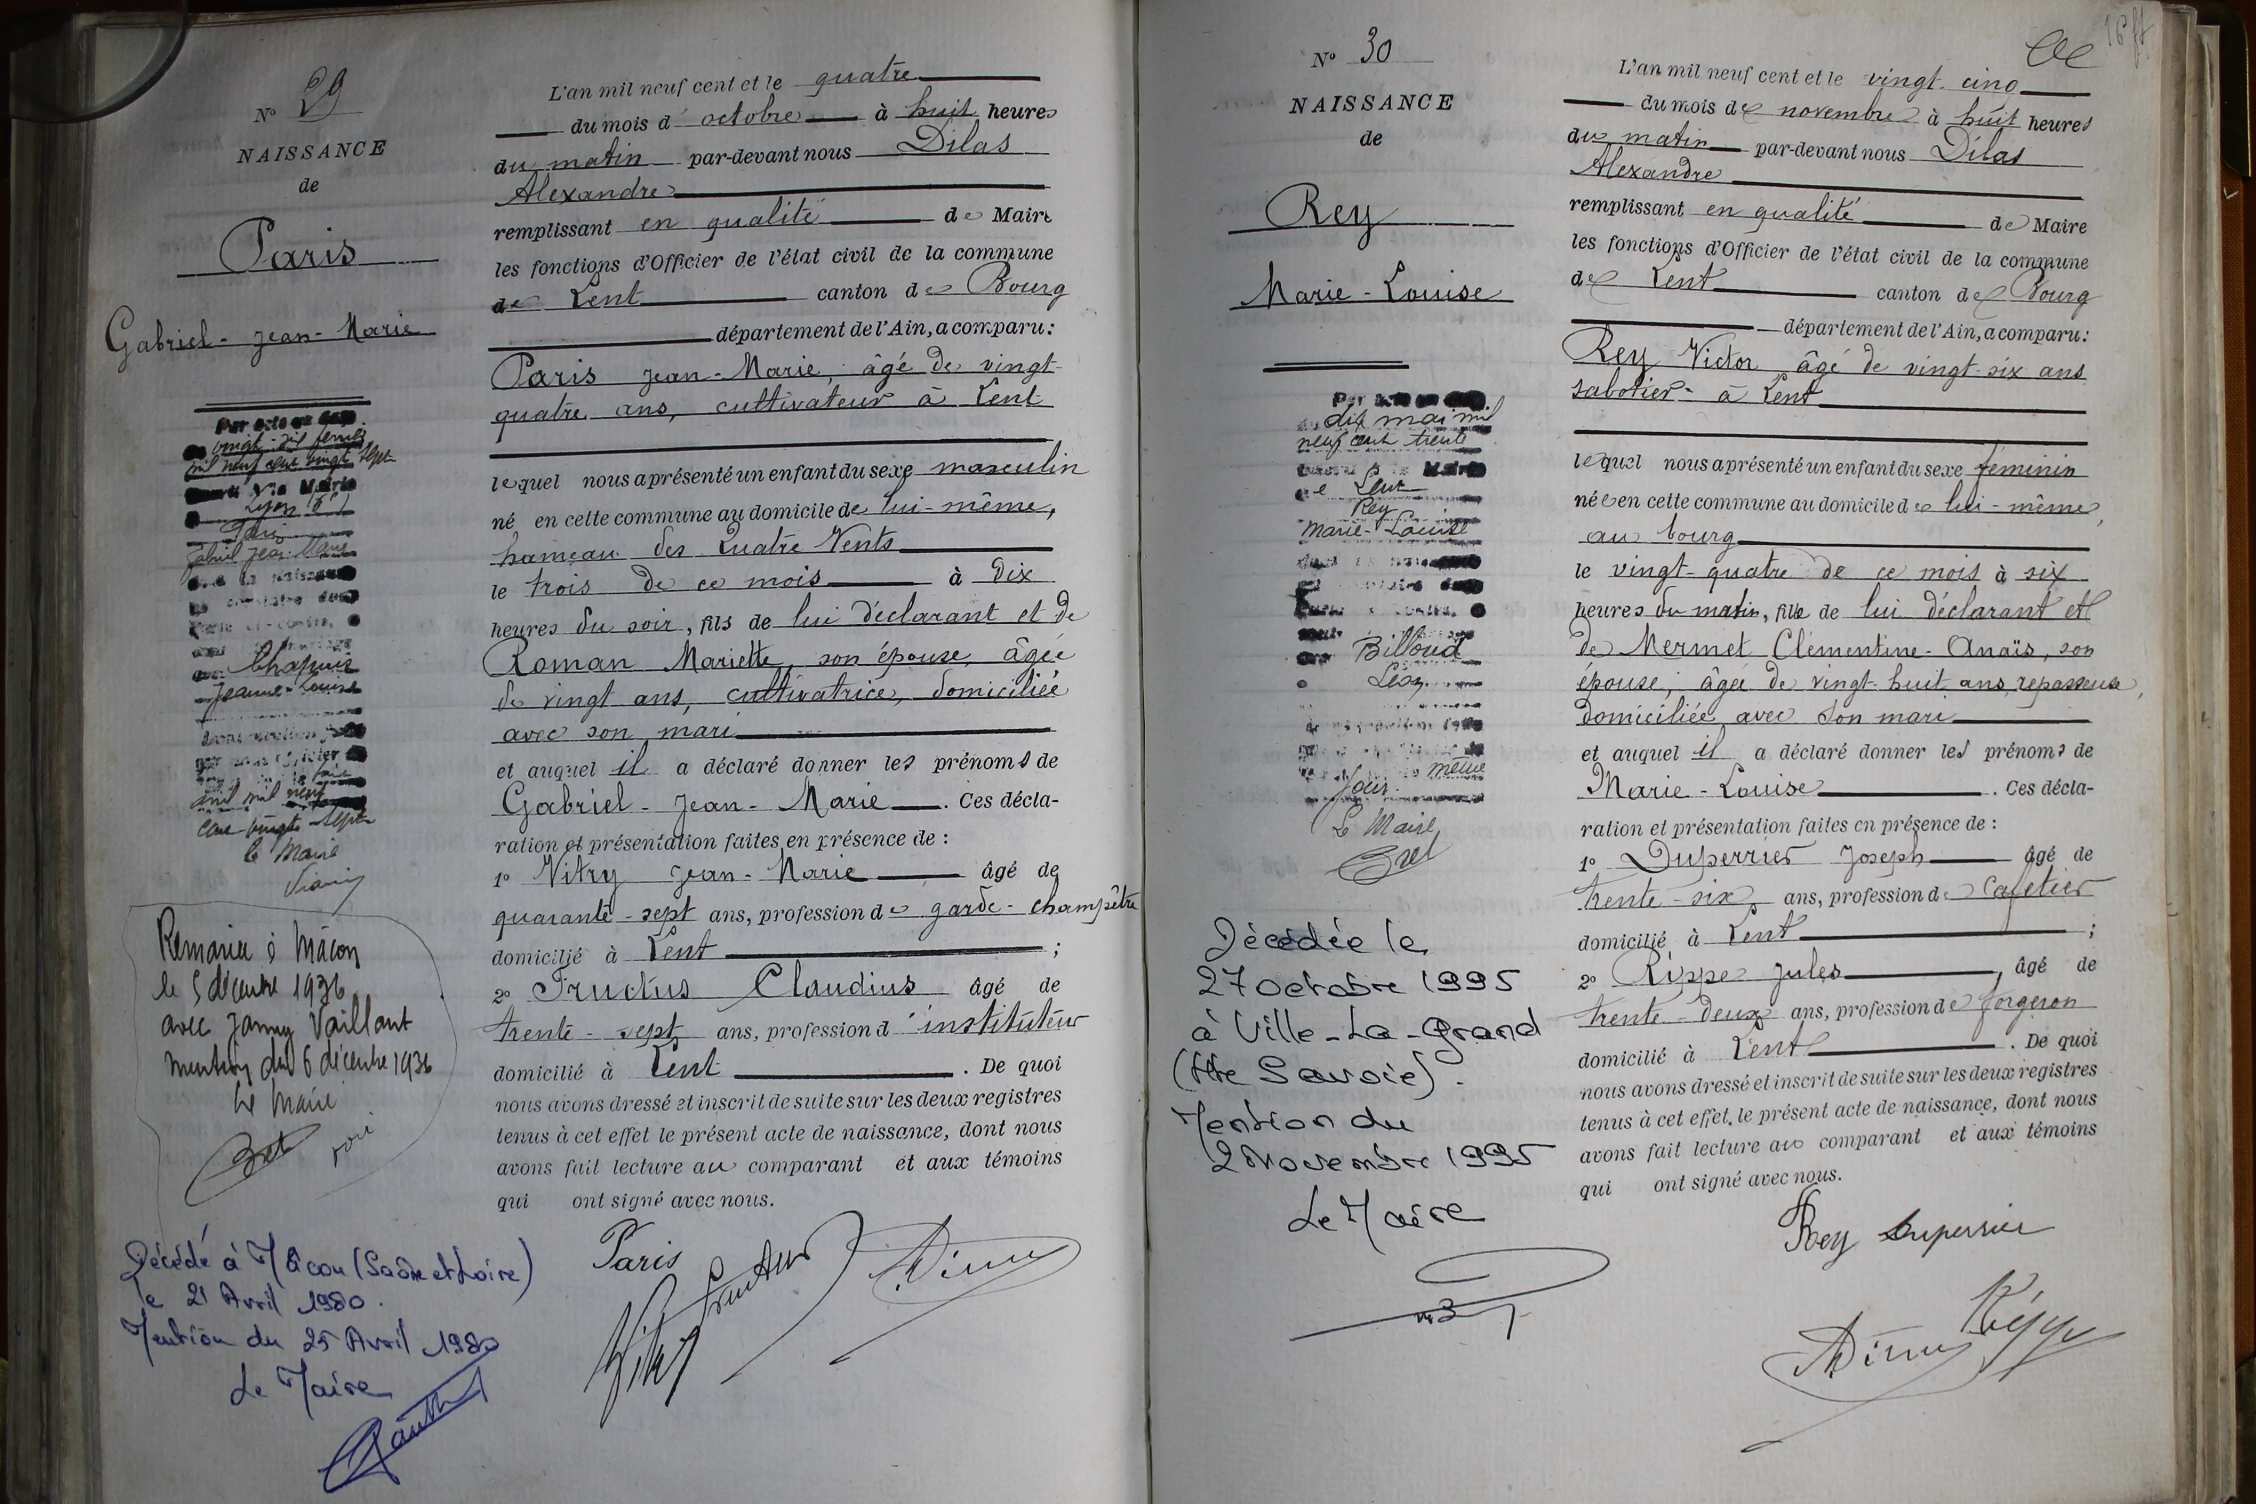 N° 29
NAISSANCE
de
Paris
Gabriel - Jean - Marie
Par acte en
vingt-six
mil neuf cent vingt sept
Mairie
Lyon
Paris
Gabriel Jean Marie
Chapuis
Jeanne-Louise
mil neuf
cent vingt-sept
le Maire
Remarié à Mâcon
le 5 décembre 1936
avec Janny Vaillant
mention du 6 décembre 1936
Le Maire
Décédé à Mâcon (Saône et Loire)
le 21 Avril 1980.
Mention du 25 Avril 1980
Le Maire
L'an mil neuf cent et le quatre
du mois d'octobre à huit heures
du matin par-devant nous Dilas
Alexandre
remplissant en qualité de Maire
les fonctions d'Officier de l'état civil de la commune
de Lent canton de Bourg
département de l'Ain, a comparu:
Paris Jean-Marie, âgé de vingt-
quatre ans, cultivateur à Lent
lequel nous a présenté un enfant du sexe masculin
né en cette commune au domicile de lui-même,
hameau des Quatre Vents
le trois de ce mois à dix
heures du soir, fils de lui déclarant et de
Roman Mariette, son épouse, âgée
de vingt ans, cultivatrice, domiciliée
avec son mari
et auquel il a déclaré donner les prénoms de
Gabriel - Jean - Marie. Ces décla-
ration et présentation faites en présence de :
1° Vitry Jean-Marie âgé de
quarante-sept ans, profession de garde-champêtre
domicilié à Lent ;
2° Fructus Claudius âgé de
trente-sept ans, profession d'instituteur
domicilié à Lent. De quoi
nous avons dressé et inscrit de suite sur les deux registres
tenus à cet effet le présent acte de naissance, dont nous
avons fait lecture au comparant et aux témoins
qui ont signé avec nous.
Paris
Vitry Fructus
N° 30
NAISSANCE
de
Rey
Marie-Louise
Par acte en
dix mai mil
neuf cent trente
Mairie
Lent
Rey
Marie-Louise
Billoud
Léon
même
jour.
Le Maire
Décédée le
27 octobre 1995
à Ville-La-Grand
(Hte Savoie).
Mention du
2 Novembre 1995
Le Maire
L'an mil neuf cent et le vingt-cinq
du mois de novembre à huit heures
du matin par-devant nous Dilas
Alexandre
remplissant en qualité de Maire
les fonctions d'Officier de l'état civil de la commune
de Lent canton de Bourg
département de l'Ain, a comparu:
Rey Victor âgé de vingt-six ans
sabotier à Lent
lequel nous a présenté un enfant du sexe féminin
née en cette commune au domicile de lui-même,
au bourg
le vingt-quatre de ce mois à six
heures du matin, fille de lui déclarant et
de Mermet Clémentine-Anaïs, son
épouse, âgée de vingt-huit ans, repasseuse,
domiciliée avec son mari
et auquel il a déclaré donner les prénoms de
Marie-Louise. Ces décla-
ration et présentation faites en présence de :
1° Duperrier Joseph âgé de
trente-six ans, profession de cafetier
domicilié à Lent ;
2° Rippe Jules, âgé de
trente-deux ans, profession de forgeron
domicilié à Lent. De quoi
nous avons dressé et inscrit de suite sur les deux registres
tenus à cet effet, le présent acte de naissance, dont nous
avons fait lecture au comparant et aux témoins
qui ont signé avec nous.
Rey Duperrier